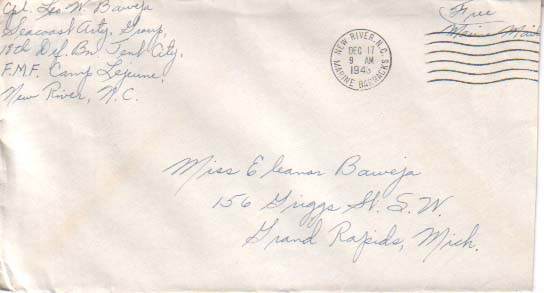 Cpl. Leo W. Baweja
Seacoast Arty. Group,
18th Def. Bn. Tent City,
F.M.F. Camp Lejeune,
New River, N.C.
Free
Marine Mail
NEW RIVER, N.C.
DEC 17
9 AM
1943
MARINE BARRACKS
Miss Eleanor Baweja
156 Griggs St. S.W.
Grand Rapids, Mich.